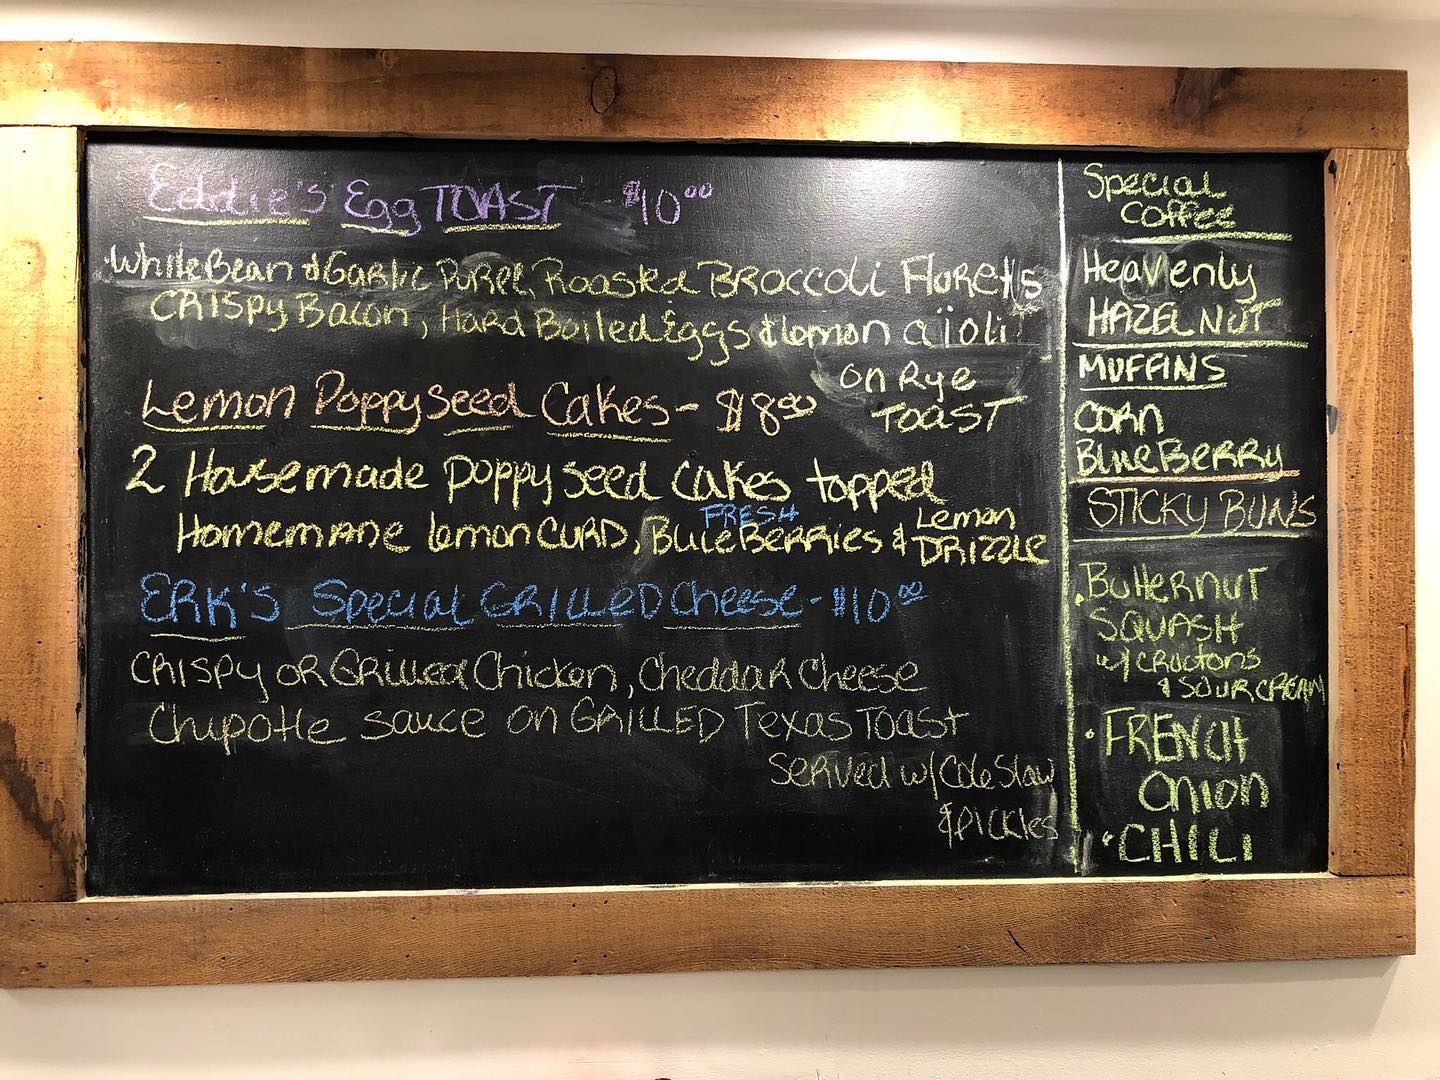 Eddie's Egg TOAST - $10.00
White Bean & Garlic Puree, Roasted BROCCOLI Florets
CRISPY Bacon, Hard Boiled Eggs & lemon aïoli
on Rye
TOAST
Lemon Poppy Seed Cakes - $8.00
2 Housemade Poppy seed cakes topped
Homemade lemon CURD, FRESH BlueBERRIES & Lemon DRIZZLE
ERK'S Special GRILLED Cheese - $10.00
CRISPY OR Grilled Chicken, Cheddar Cheese
Chipotle sauce on GRILLED Texas Toast
Served w/ Cole Slaw
& Pickles
Special
Coffee
Heavenly
HAZELNUT
MUFFINS
CORN
BlueBERRY
STICKY BUNS
. Butternut
SQUASH
w/ croutons
& SOUR CREAM
. FRENCH
Onion
. CHILI